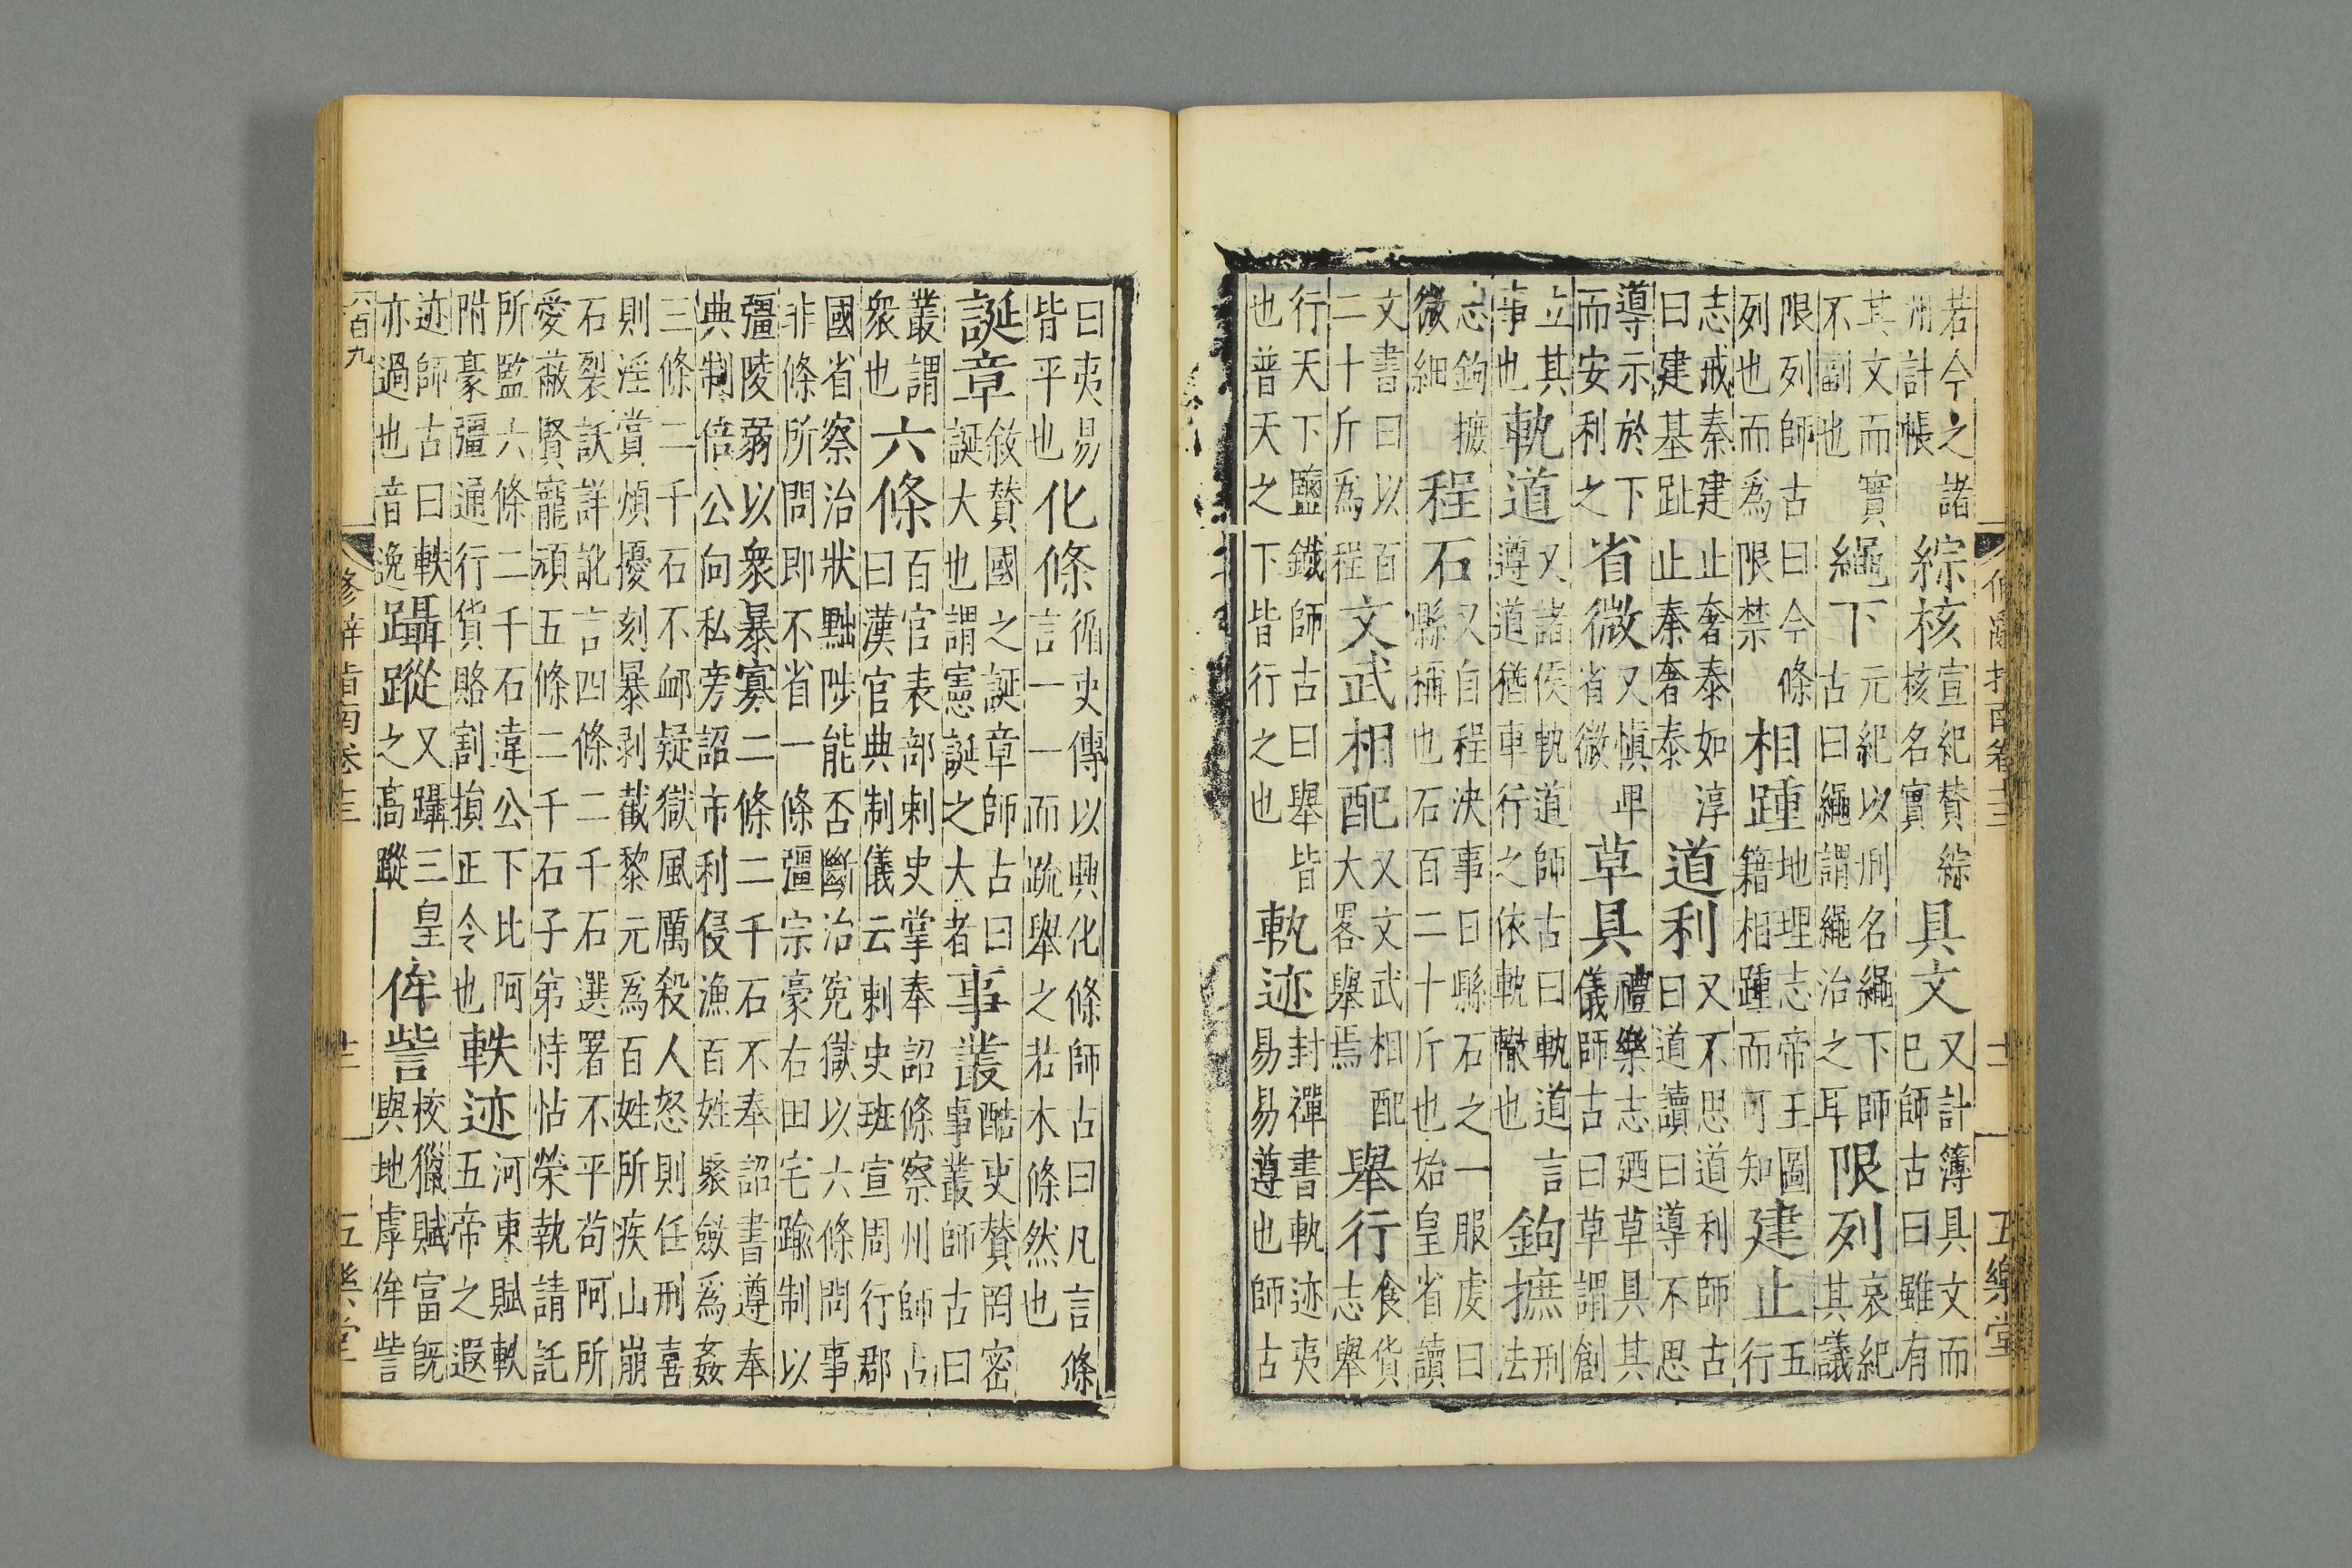 修辭指南卷十三　十二　五樂堂
若今之諸州計帳　綜核宣紀贊綜核名實　具文又計簿具文而巳師古曰雖有
其文而實不副也　繩下元紀以刑名繩下師古曰繩謂繩治之耳　限列哀紀其議
限列師古曰今條列也而爲限禁　相踵地理志帝王圖籍相踵而可知　建止五行
志戒秦建止奢泰如淳曰建基趾止秦奢泰　道利又不思道利師古曰道讀曰導不思
導示於下而安利之　省微又愼卑省微　草具禮樂志廼草具其儀師古曰草謂創
立其事也　軌道又諸侯軌道師古曰軌道言遵道猶車行之依軌轍也　鉤摭刑法
志鉤摭微細　程石又自程決事日縣石之一服虔曰縣稱也石百二十斤也始皇省讀
文書日以百二十斤爲程　文武相配又文武相配大畧舉焉　舉行食貨志舉
行天下鹽鐵師古曰舉皆也普天之下皆行之也　軌迹封禪書軌迹夷易易遵也師古
曰夷易皆平也　化條循吏傳以興化條師古曰凡言條言一一而疏舉之若木條然也
誕章敘贊國之誕章師古曰誕大也謂憲誕之大者　事叢酷吏贊罔密事叢師古曰
叢謂衆也　六條百官表部刺史掌奉詔條察州師古曰漢官典制儀云刺史班宣周行郡
國省察治狀黜陟能否斷治寃獄以六條問事非條所問即不省一條彊宗豪右田宅踰制以
彊陵弱以衆暴寡二條二千石不奉詔書遵奉典制倍公向私旁詔市利侵漁百姓聚斂爲姦
三條二千石不卹疑獄風厲殺人怒則任刑喜則淫賞煩擾刻暴剥截黎元爲百姓所疾山崩
石裂訞詳訛言四條二千石選署不平苟阿所愛蔽賢寵頑五條二千石子弟恃怙榮執請託
所監六條二千石違公下比阿附豪彊通行貨賂割損正令也　軼迹河東賦軼五帝之遐
迹師古曰軼亦過也音逸　躡蹤又躡三皇之高蹤　侔訾校獵賦富旣與地虖侔訾
八百九　修辭指南卷十三　五樂堂